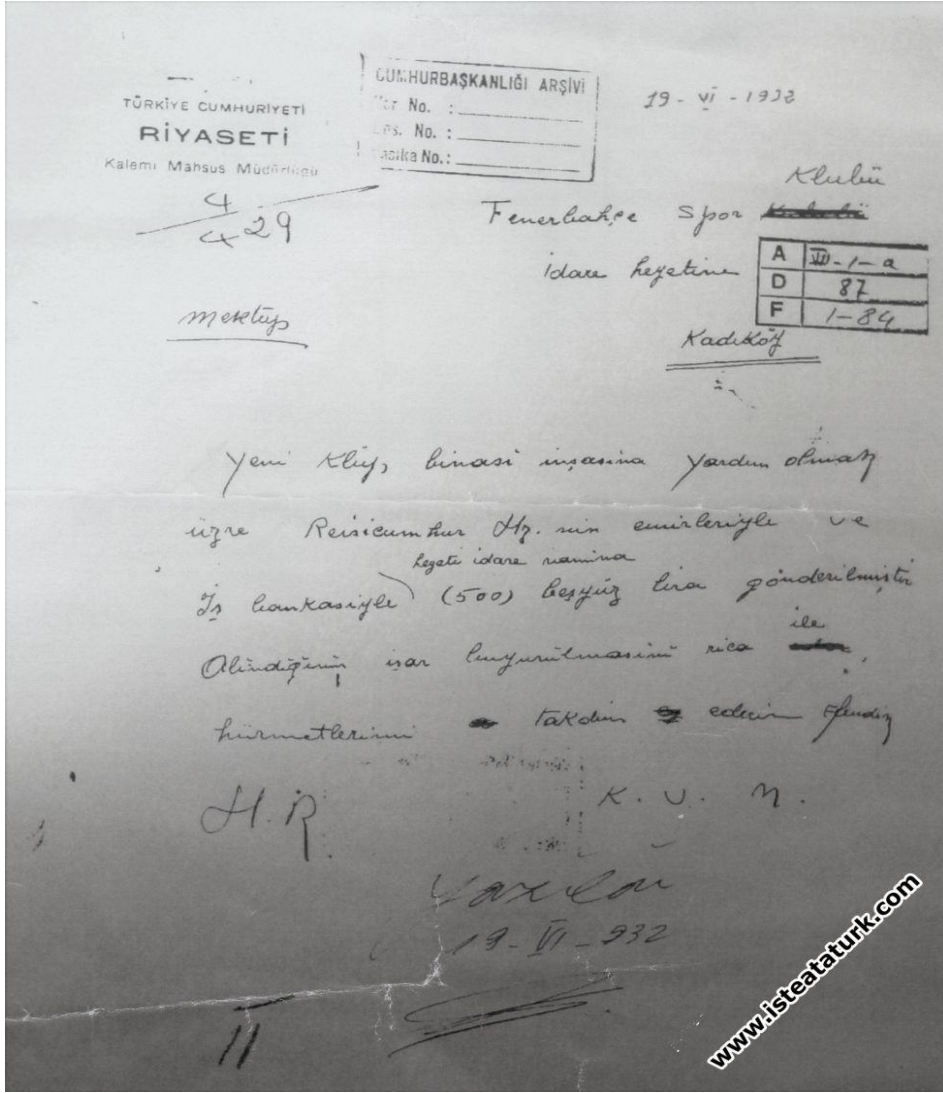 TÜRKİYE CUMHURİYETİ
RİYASETİ
Kalemi Mahsus Müdürlüğü
4
4 29
CUMHURBAŞKANLIĞI ARŞİVİ
Yer No. :
Des. No. :
Vesika No. :
19 - VI - 1932
Klubü
Fenerbahçe Spor
idare heyetine
A VII-1-a
D 87
F 1-84
Kadıköy
mektup
Yeni Klüp binasi inşasina yardım olmak
üzre Reisicumhur Hz. nin emirleriyle ve
heyeti idare namina
İş bankasiyle (500) beşyüz lira gönderilmiştir
Alındığının işar buyurulmasını rica ile
hürmetlerimi takdim ederim Efendim
H. R.
K. U. M.
Yazıldı
19 - VI - 932
11
www.isteataturk.com